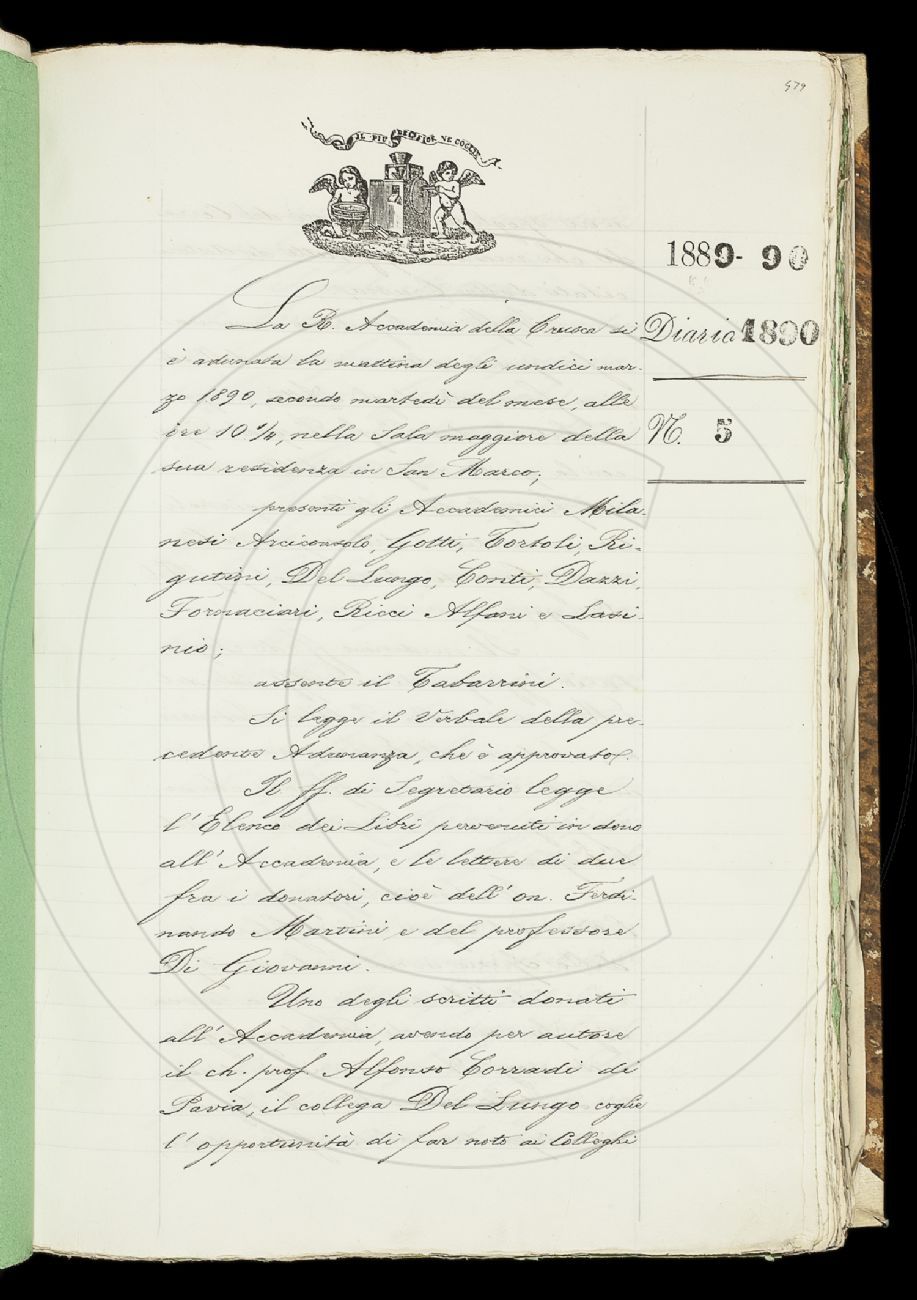 579
IL PIÙ BEL FIOR NE COGLIE
1889-90
Diario 1890
N. 5
La R. Accademia della Crusca si
è adunata la mattina degli undici mar-
zo 1890, secondo martedì del mese, alle
ore 10 1/4, nella Sala maggiore della
sua residenza in San Marco;
presenti gli Accademici Mila-
nesi Arciconsolo, Gotti, Tortoli, Ri-
gutini, Del Lungo, Conti, Dazzi,
Fornaciari, Ricci Alfani e Lasi-
nio;
assente il Tabarrini.
Si legge il Verbale della pre-
cedente Adunanza, che è approvato.
Il ff. di Segretario legge
l'Elenco dei Libri pervenuti in dono
all'Accademia, e le lettere di due
fra i donatori, cioè dell'on. Ferdi-
nando Martini e del professore
Di Giovanni.
Uno degli scritti donati
all'Accademia, avendo per autore
il ch. prof. Alfonso Corradi di
Pavia, il collega Del Lungo coglie
l'opportunità di far noto ai Colleghi